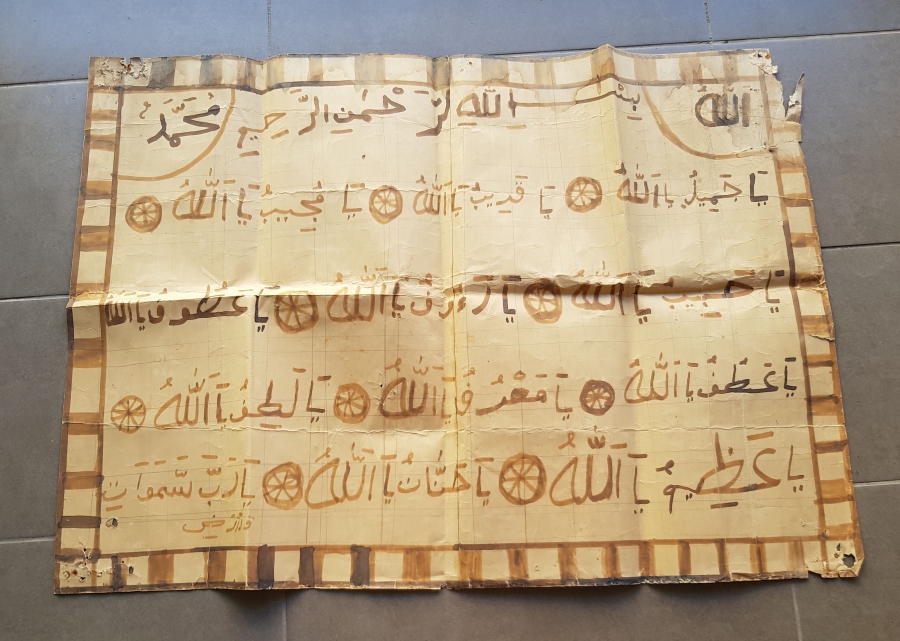 الله بِسْــمِ اللهِ الرَّحْمٰنِ الرَّحِيمِ مُحَمَّدْ
يَا جَمِيلُ يَا اَللهُ يَا قَرِيبُ يَا اَللهُ يَا مُجِيبُ يَا اَللهُ
يَا حَبِيبُ يَا اَللهُ يَا رَءُوفُ يَا اَللهُ يَا عَطُوفُ يَا اَللهُ
يَا اَللهُ يَا مَعْرُفُ يَا اَللهُ يَا اَللهُ
يَا عَظِيمُ يَا اَللهُ يَا حَنَّانُ يَا اَللهُ يَا رَبَّ سَّمَوَاتِ
وَاْرْضِ